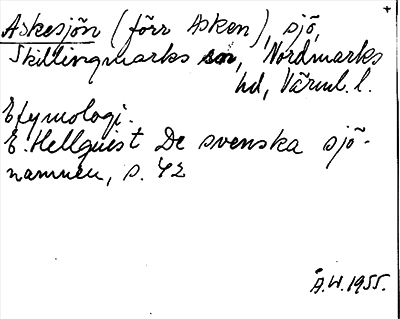 +
Askesjön (förr Asken), sjö,
Skillingmarks sn, Nordmarks
hd, Värml. l.
Etymologi.
E. Hellquist De svenska sjö-
namnen, s. 42
Å.W. 1955.